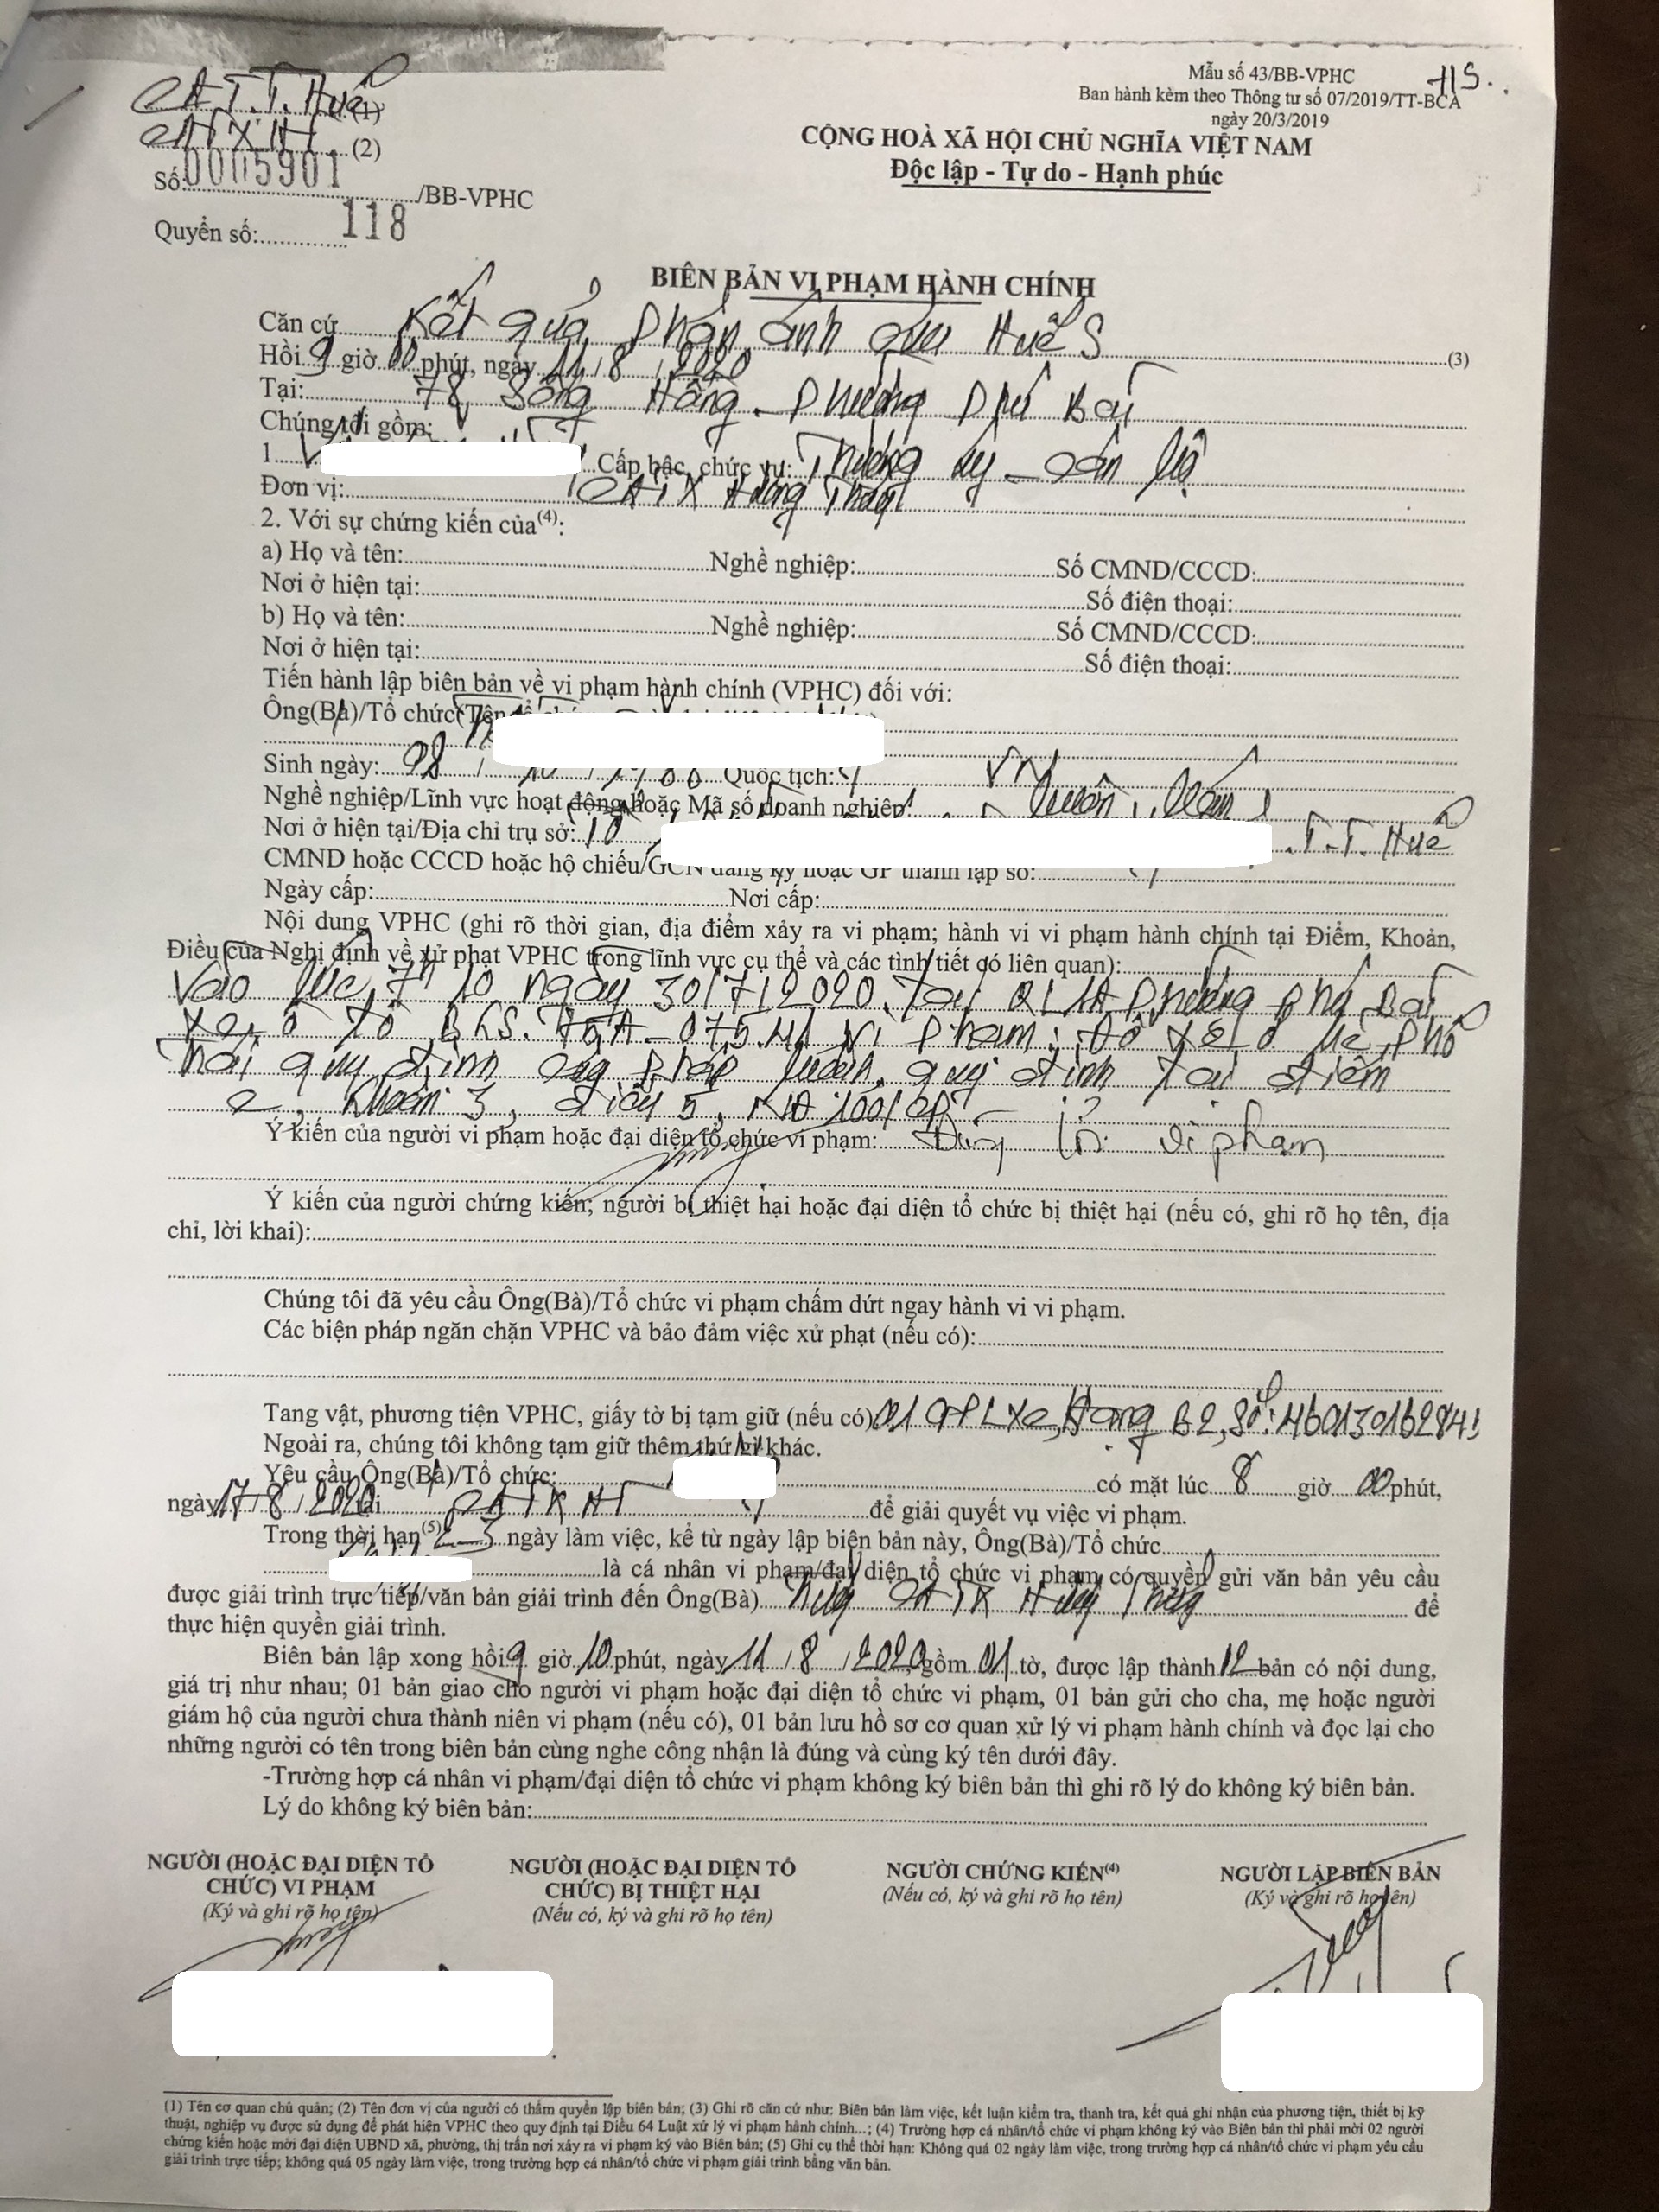 Mẫu số 43/BB-VPHC
Ban hành kèm theo Thông tư số 07/2019/TT-BCA
ngày 20/3/2019
CA T.T.Huế (1)
CATXHT (2)
Số: 0005901 /BB-VPHC
Quyển số: 118
CỘNG HOÀ XÃ HỘI CHỦ NGHĨA VIỆT NAM
Độc lập - Tự do - Hạnh phúc
BIÊN BẢN VI PHẠM HÀNH CHÍNH
Căn cứ Kết quả phản ánh qua Huế S (3)
Hồi 9 giờ 00 phút, ngày 11/8/2020
Tại: 78 Sóng Hồng - Phường Phú Bài
Chúng tôi gồm:
1. Cấp bậc, chức vụ: Thượng úy - cán bộ
Đơn vị: CATX Hương Thủy
2. Với sự chứng kiến của(4):
a) Họ và tên: Nghề nghiệp: Số CMND/CCCD:
Nơi ở hiện tại: Số điện thoại:
b) Họ và tên: Nghề nghiệp: Số CMND/CCCD:
Nơi ở hiện tại: Số điện thoại:
Tiến hành lập biên bản về vi phạm hành chính (VPHC) đối với:
Ông(Bà)/Tổ chức(Tên
Sinh ngày: Quốc tịch: VN
Nghề nghiệp/Lĩnh vực hoạt động hoặc Mã số doanh nghiệp:
Nơi ở hiện tại/Địa chỉ trụ sở: 10 T.T.Huế
CMND hoặc CCCD hoặc hộ chiếu/GCN đăng ký hoặc GP thành lập số:
Ngày cấp: Nơi cấp:
Nội dung VPHC (ghi rõ thời gian, địa điểm xảy ra vi phạm; hành vi vi phạm hành chính tại Điểm, Khoản,
Điều của Nghị định về xử phạt VPHC trong lĩnh vực cụ thể và các tình tiết có liên quan):
Vào lúc 7h10 ngày 30/7/2020. Tại QL1A Phường Phú Bài
xe ô tô BKS. 75A-075.41 vi phạm: Đỗ xe ở hè phố
trái quy định của pháp luật, quy định tại điểm
e, khoản 3, điều 5, NĐ 100/CP
Ý kiến của người vi phạm hoặc đại diện tổ chức vi phạm: Đúng lỗi vi phạm
Ý kiến của người chứng kiến; người bị thiệt hại hoặc đại diện tổ chức bị thiệt hại (nếu có, ghi rõ họ tên, địa
chỉ, lời khai):
Chúng tôi đã yêu cầu Ông(Bà)/Tổ chức vi phạm chấm dứt ngay hành vi vi phạm.
Các biện pháp ngăn chặn VPHC và bảo đảm việc xử phạt (nếu có):
Tang vật, phương tiện VPHC, giấy tờ bị tạm giữ (nếu có) 01 GPLXe, Hạng B2, Số: 460130162841
Ngoài ra, chúng tôi không tạm giữ thêm thứ gì khác.
Yêu cầu Ông(Bà)/Tổ chức: có mặt lúc 8 giờ 00 phút,
ngày 17/8/2020 tại CATXHT để giải quyết vụ việc vi phạm.
Trong thời hạn(5) 2-3 ngày làm việc, kể từ ngày lập biên bản này, Ông(Bà)/Tổ chức
là cá nhân vi phạm/đại diện tổ chức vi phạm có quyền gửi văn bản yêu cầu
được giải trình trực tiếp/văn bản giải trình đến Ông(Bà) CATX Hương Thủy để
thực hiện quyền giải trình.
Biên bản lập xong hồi 9 giờ 10 phút, ngày 11/8/2020, gồm 01 tờ, được lập thành 12 bản có nội dung,
giá trị như nhau; 01 bản giao cho người vi phạm hoặc đại diện tổ chức vi phạm, 01 bản gửi cho cha, mẹ hoặc người
giám hộ của người chưa thành niên vi phạm (nếu có), 01 bản lưu hồ sơ cơ quan xử lý vi phạm hành chính và đọc lại cho
những người có tên trong biên bản cùng nghe công nhận là đúng và cùng ký tên dưới đây.
-Trường hợp cá nhân vi phạm/đại diện tổ chức vi phạm không ký biên bản thì ghi rõ lý do không ký biên bản.
Lý do không ký biên bản:
NGƯỜI (HOẶC ĐẠI DIỆN TỔ CHỨC) VI PHẠM
(Ký và ghi rõ họ tên)
NGƯỜI (HOẶC ĐẠI DIỆN TỔ CHỨC) BỊ THIỆT HẠI
(Nếu có, ký và ghi rõ họ tên)
NGƯỜI CHỨNG KIẾN(4)
(Nếu có, ký và ghi rõ họ tên)
NGƯỜI LẬP BIÊN BẢN
(Ký và ghi rõ họ tên)
(1) Tên cơ quan chủ quản; (2) Tên đơn vị của người có thẩm quyền lập biên bản; (3) Ghi rõ căn cứ như: Biên bản làm việc, kết luận kiểm tra, thanh tra, kết quả ghi nhận của phương tiện, thiết bị kỹ
thuật, nghiệp vụ được sử dụng để phát hiện VPHC theo quy định tại Điều 64 Luật xử lý vi phạm hành chính...; (4) Trường hợp cá nhân/tổ chức vi phạm không ký vào Biên bản thì phải mời 02 người
chứng kiến hoặc mời đại diện UBND xã, phường, thị trấn nơi xảy ra vi phạm ký vào Biên bản; (5) Ghi cụ thể thời hạn: Không quá 02 ngày làm việc, trong trường hợp cá nhân/tổ chức vi phạm yêu cầu
giải trình trực tiếp; không quá 05 ngày làm việc, trong trường hợp cá nhân/tổ chức vi phạm giải trình bằng văn bản.